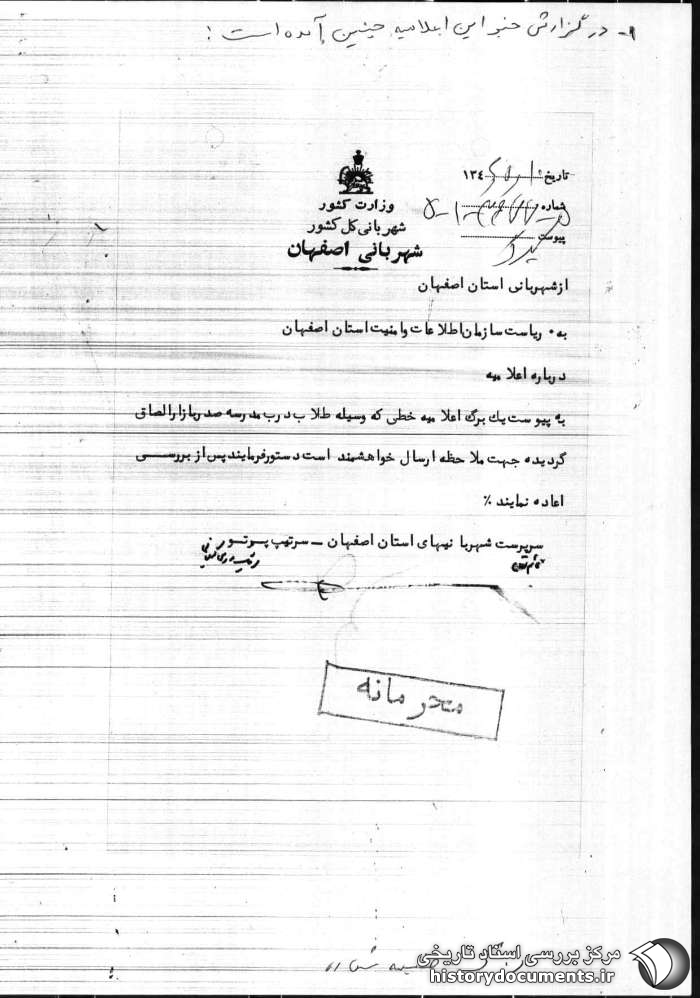 ۹- در گزارش خبر این اعلامیه چنین آمده است:
تاریخ
شماره
پیوست
وزارت کشور
شهربانی کل کشور
شهربانی اصفهان
از شهربانی استان اصفهان
به ۰ ریاست سازمان اطلاعات و امنیت استان اصفهان
درباره اعلامیه
به پیوست یک برگ اعلامیه خطی که وسیله طلاب درب مدرسه صدر بازار الصاق
گردیده جهت ملاحظه ارسال خواهشمند است دستور فرمایند پس از بررسی
اعاده نمایند ٪
سرپرست شهربانیهای استان اصفهان – سرتیپ پرتور
محرمانه
مرکز بررسی اسناد تاریخی
historydocuments.ir